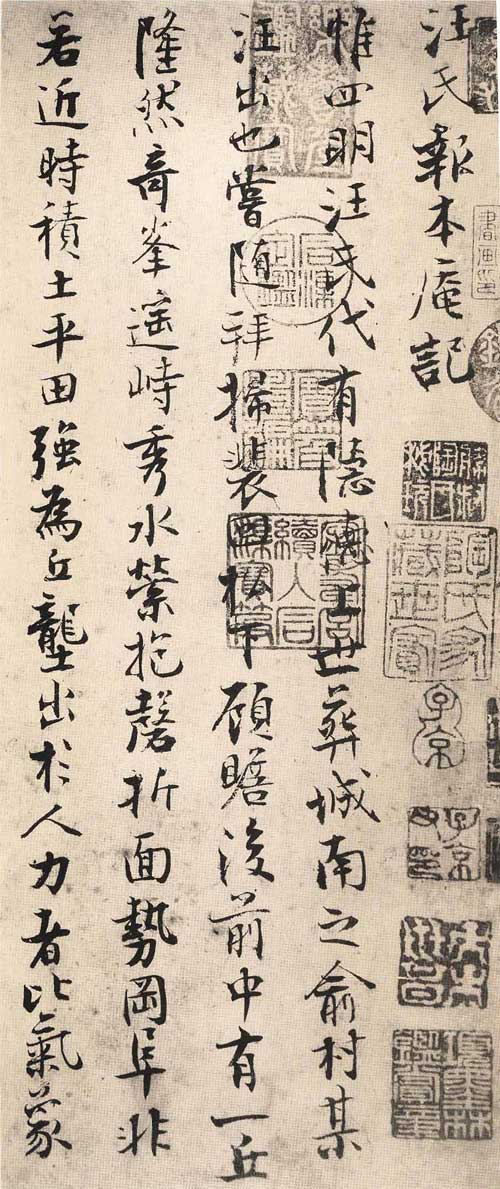 汪氏報本庵記
惟四明汪氏代有隱德上世葬城南之俞村某
汪出也嘗随拜掃裴回松下顧瞻後前中有一丘
隆然奇峯遥峙秀水縈抱磬折面勢岡阜非
若近時積土平田強為丘壟出於人力者比氣象
陶氏家藏世寳
子京